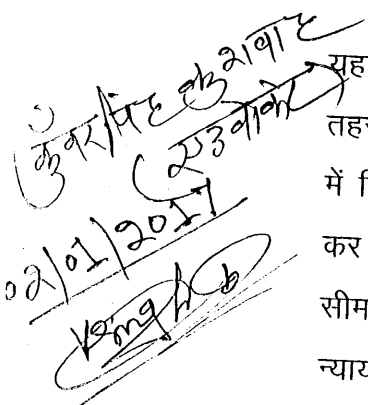 कुँवर सिंह कुशवाह
(एडवोकेट)
02/01/2017
यह
तहस
में f
कर
सीम
न्याय